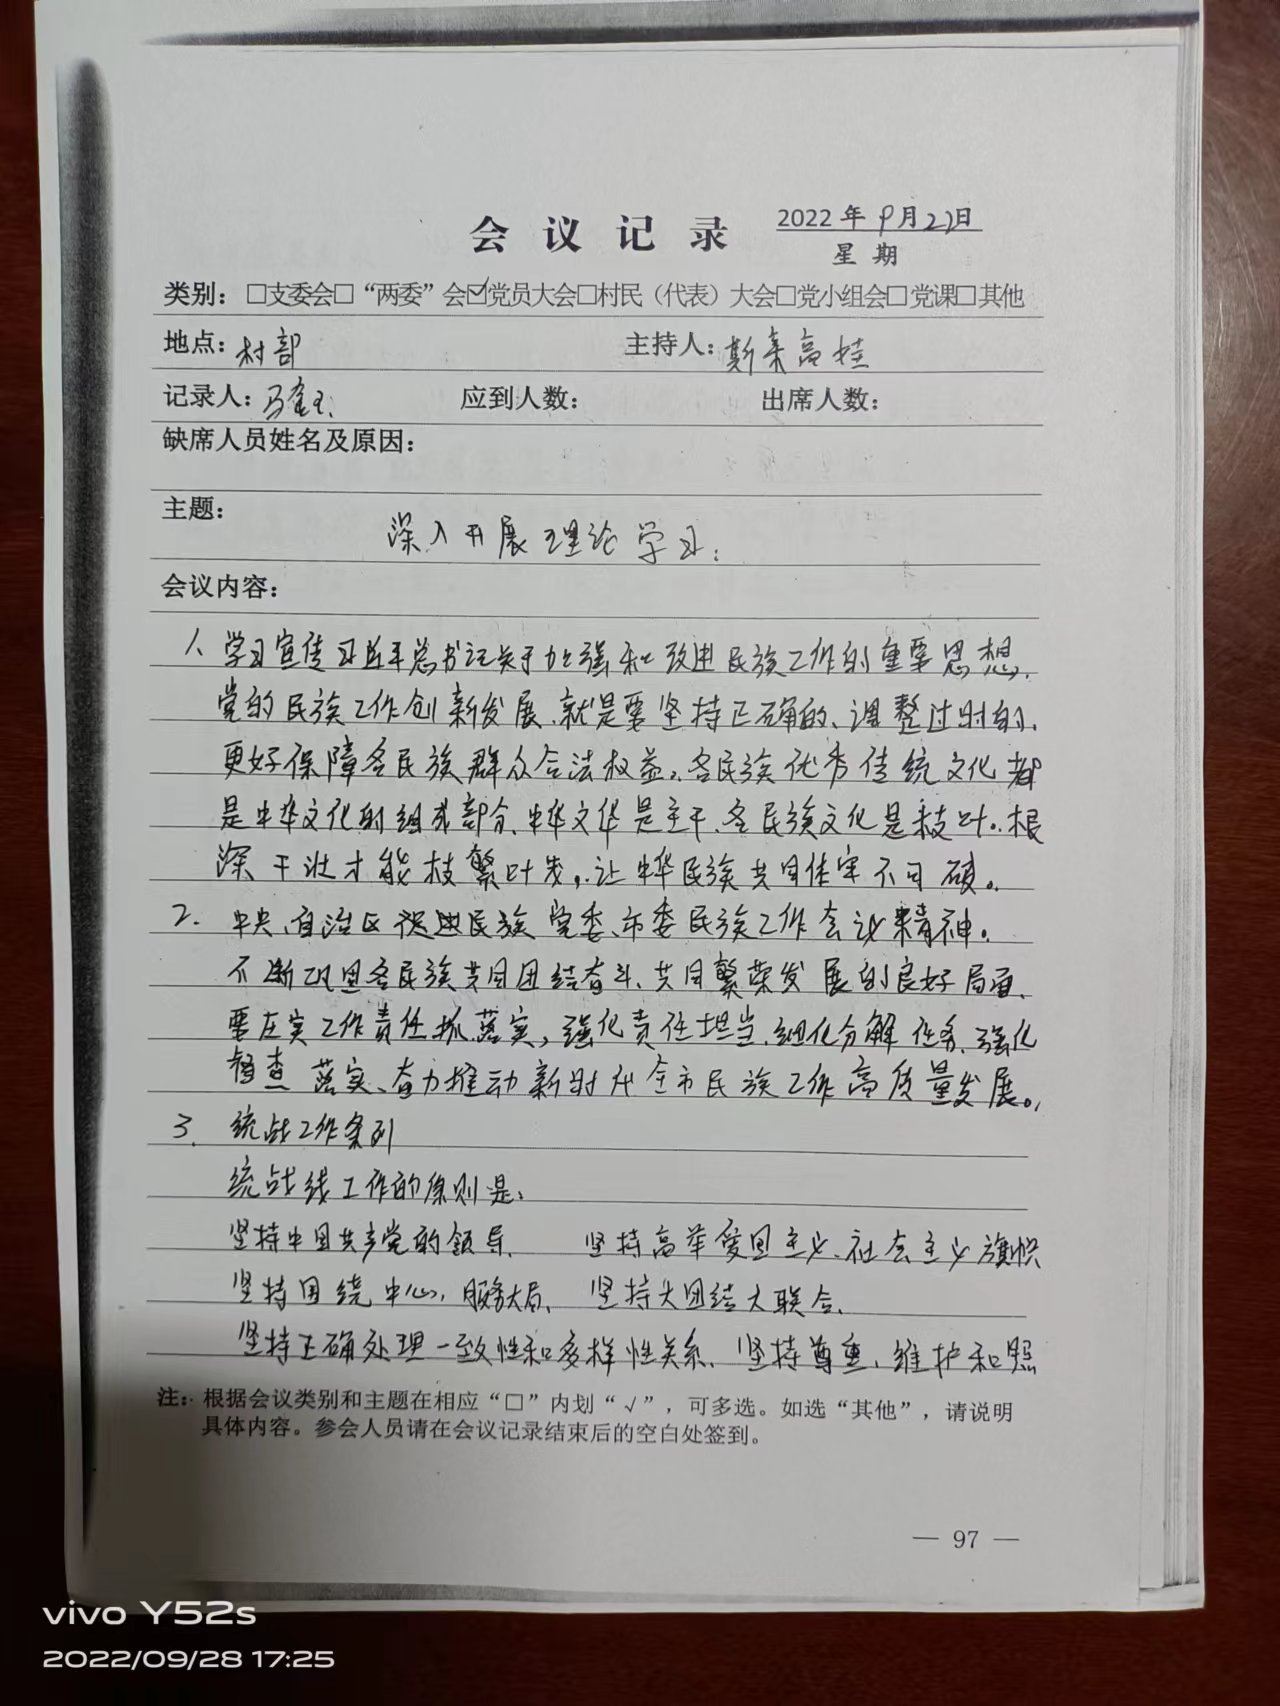 会议记录 2022年9月22日
星期
类别：□支委会□“两委”会☑党员大会□村民（代表）大会□党小组会□党课□其他
地点：村部 主持人：斯高娃
记录人：马 应到人数： 出席人数：
缺席人员姓名及原因：
主题：
深入开展理论学习：
会议内容：
1、学习宣传习近平总书记关于加强和改进民族工作的重要思想、
党的民族工作创新发展、就是要坚持正确的、调整过时的、
更好保障各民族群众合法权益。各民族优秀传统文化都
是中华文化的组成部分、中华文华是主干、各民族文化是枝叶。根
深干壮才能枝繁叶茂。让中华民族共同体牢不可破。
2. 中央、自治区促进民族党委、市委民族工作会议精神。
不断巩固各民族共同团结奋斗、共同繁荣发展的良好局面、
要压实工作责任抓落实，强化责任担当、细化分解任务、强化
督查落实、奋力推动新时代全市民族工作高质量发展。
3. 统战工作条列
统战线工作的原则是：
坚持中国共产党的领导、 坚持高举爱国主义、社会主义旗帜
坚持围绕中心，服务大局、 坚持大团结大联合、
坚持正确处理一致性和多样性关系、坚持尊重、维护和照
注：根据会议类别和主题在相应“□”内划“√”，可多选。如选“其他”，请说明
具体内容。参会人员请在会议记录结束后的空白处签到。
— 97 —
vivo Y52s
2022/09/28 17:25